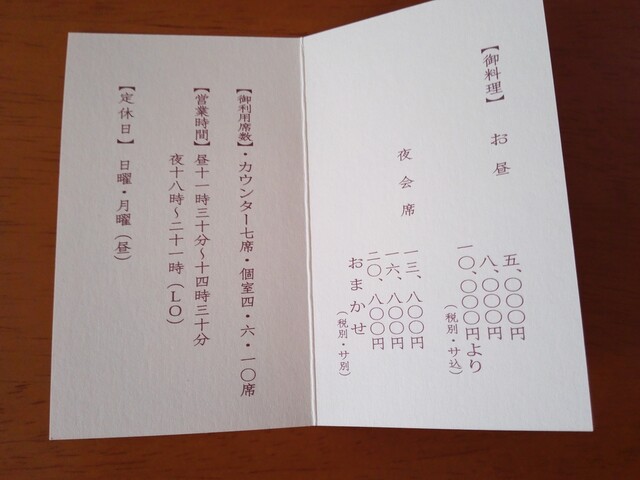 【御料理】
お昼
五、〇〇〇円
八、〇〇〇円
一〇、〇〇〇円より
（税別・サ込）
夜会席
一三、八〇〇円
一六、八〇〇円
二〇、八〇〇円
おまかせ
（税別・サ別）
【御利用席数】・カウンター七席・個室四・六・一〇席
【営業時間】昼十一時三十分～十四時三十分
夜十八時～二十一時（ＬＯ）
【定休日】日曜・月曜（昼）